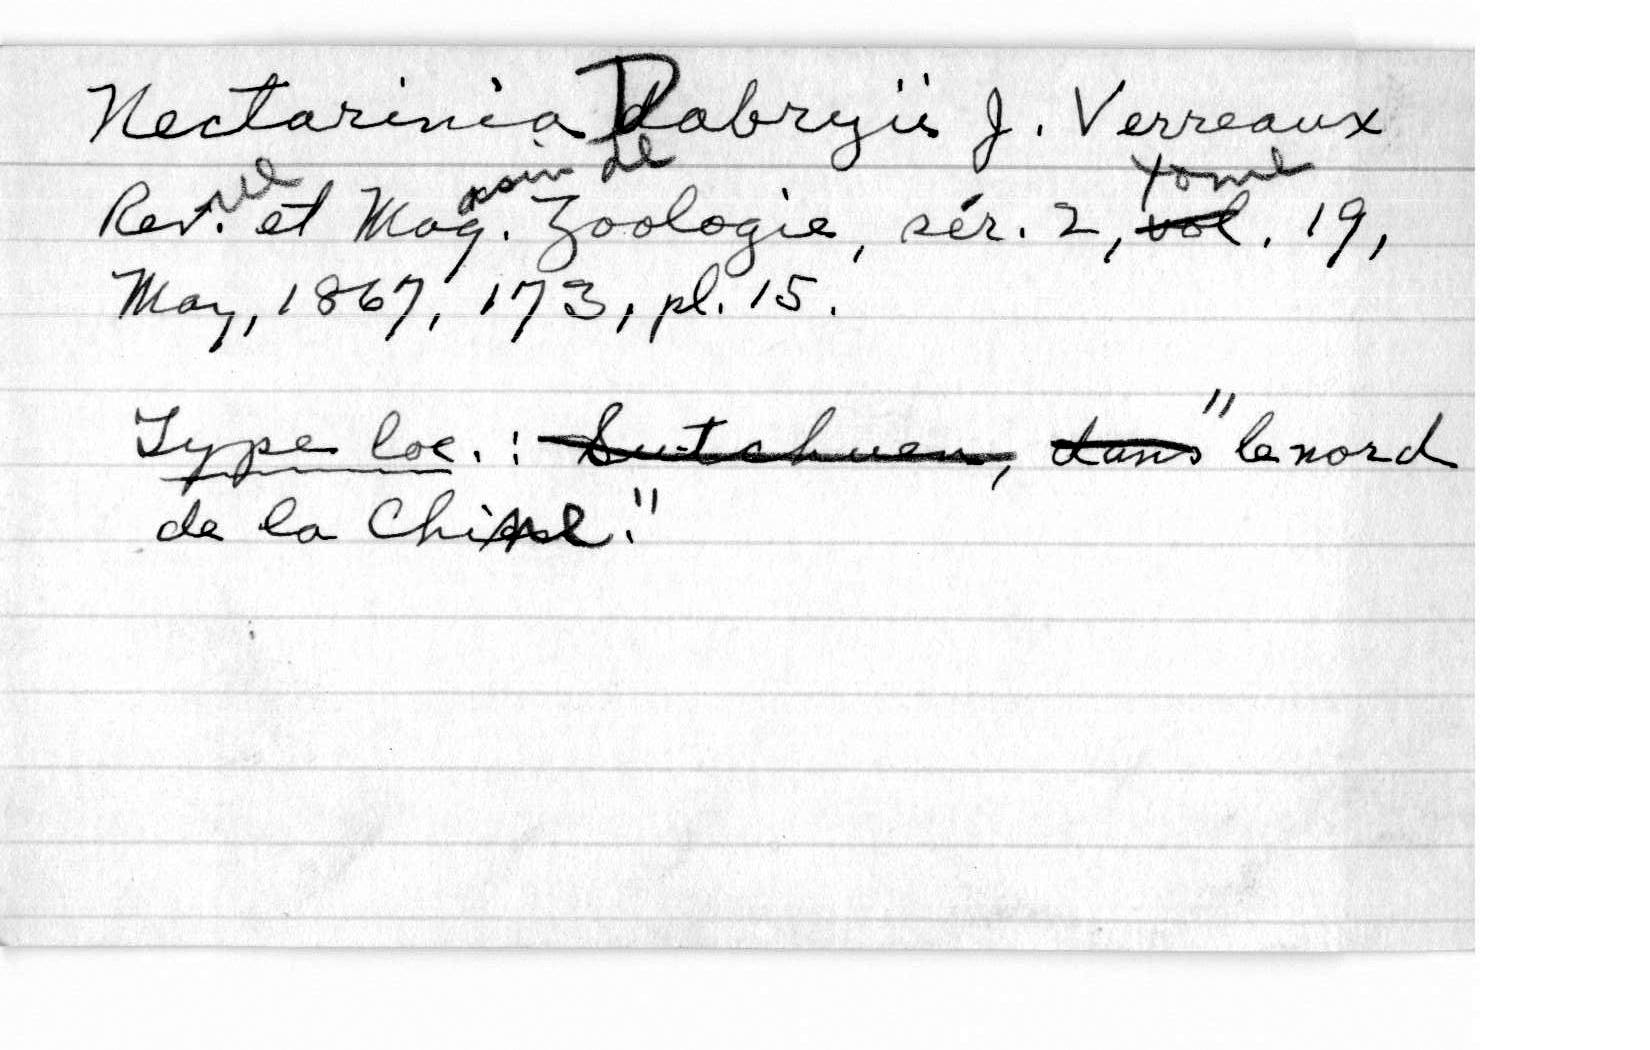 Nectarinia Dabryii J. Verreaux
Revue et Magasin de Zoologie, sér. 2, tome 19,
May, 1867, 173, pl. 15.
Type loc.: Sutchuen, dans "le nord
de la Chine."